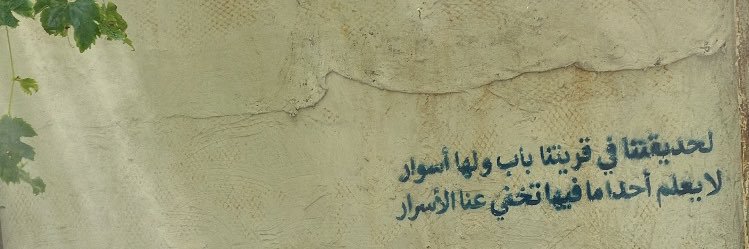 لحديقتنا في قريتنا باب ولها أسوار
لا يعلم أحدا ما فيها تخفي عنا الأسرار